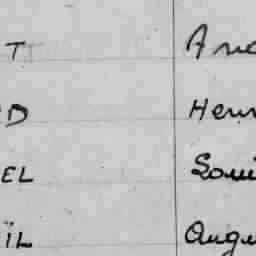 T Ana
D Henr
EL Soui
ïL Augu